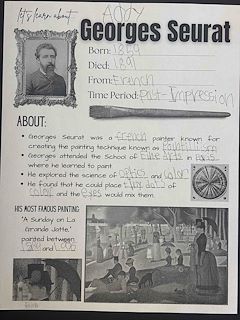 let's learn about...
Georges Seurat
Born: 1859
Died: 1891
From: French
Time Period: Post-Impression
ABOUT:
• Georges Seurat was a French painter known for
creating the painting technique known as
• Georges attended the School of Fine Arts in Paris
where he learned to paint.
• He explored the science of optics and color
• He found that he could place tiny dots of
color and the eyes would mix them.
HIS MOST FAMOUS PAINTING
"A Sunday on La
Grande Jatte,"
painted between
and